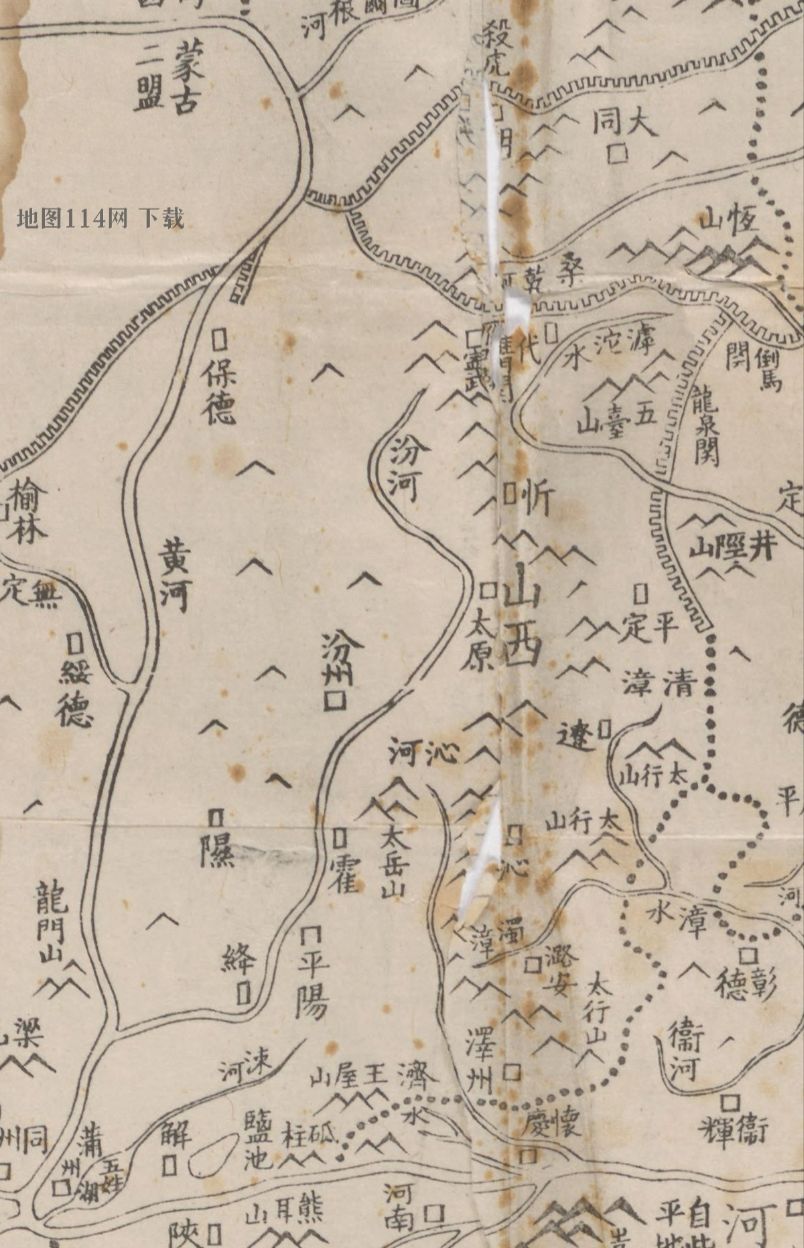 河
殺虎
蒙古
二盟
大同
地图114网 下载
恆山
桑乾河
代
滹沱水
倒馬関
寧武
五臺山
龍泉関
保德
汾河
榆林
忻
定
井陘山
黄河
無定
山西
太原
平定
汾州
綏德
清漳
遼
沁河
太行山
德
平
太行山
隰
霍
太岳山
沁
龍門山
漳水
河
絳
平陽
濁漳
潞安
太行山
彰德
梁山
澤州
衞河
涑河
王屋山
濟水
懷慶
衞輝
同州
蒲州
五姓湖
解
鹽池
砥柱
陝
熊耳山
河南
自此
平地
河